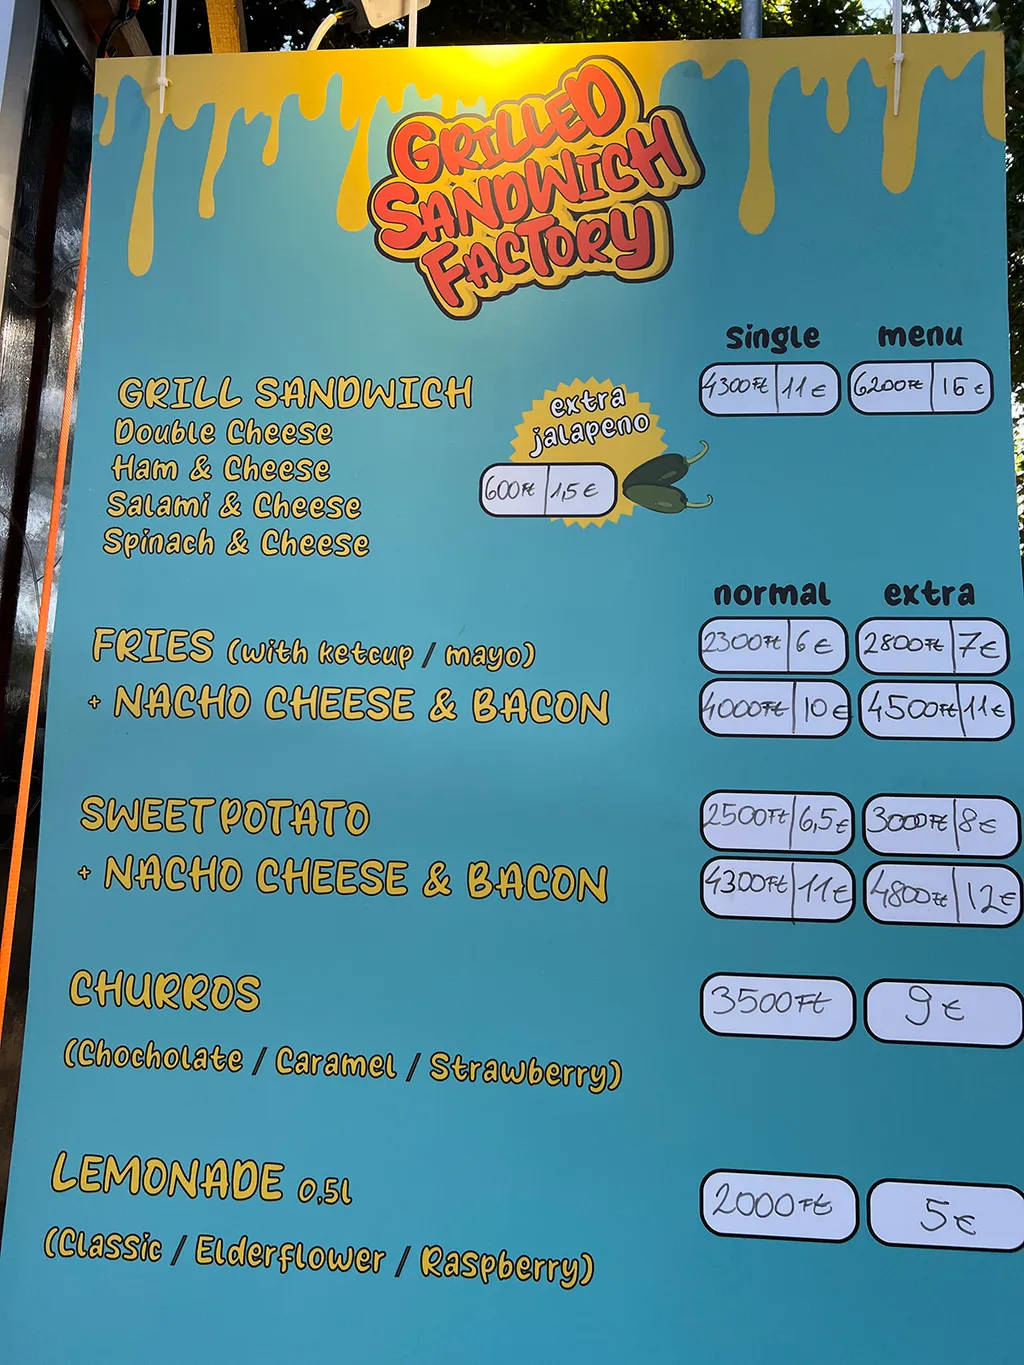 GRILLED
SANDWICH
FACTORY
single menu
GRILL SANDWICH 4300Ft 11€ 6200Ft 16€
Double Cheese
Ham & Cheese
Salami & Cheese
Spinach & Cheese
extra
jalapeno
600Ft 1,5€
normal extra
FRIES (with ketcup / mayo) 2300Ft 6€ 2800Ft 7€
+ NACHO CHEESE & BACON 4000Ft 10€ 4500Ft 11€
SWEET POTATO 2500Ft 6,5€ 3000Ft 8€
+ NACHO CHEESE & BACON 4300Ft 11€ 4800Ft 12€
CHURROS 3500Ft 9€
(Chocholate / Caramel / Strawberry)
LEMONADE 0,5L 2000Ft 5€
(Classic / Elderflower / Raspberry)